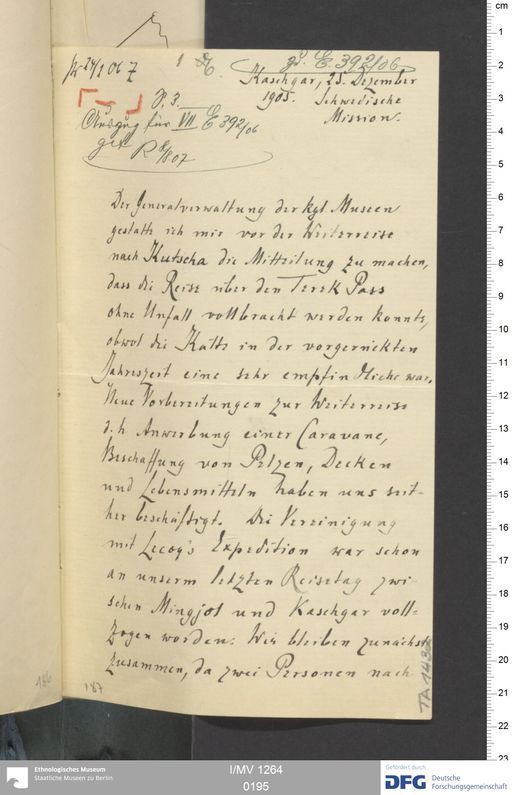 24/1 06
z. E. 392/06
Kaschgar, 25. Dezember
1905. Schwedische
Mission.
P. 3.
Auszug für VII E 392/06
Der Generalverwaltung der kgl. Museen
gestatte ich mir vor der Weiterreise
nach Kutscha die Mitteilung zu machen,
dass die Reise über den Terek Pass
ohne Unfall vollbracht werden konnte,
obwol die Kälte in der vorgerückten
Jahreszeit eine sehr empfindliche war.
Neue Vorbereitungen zur Weiterreise
d. h. Anwerbung einer Caravane,
Beschaffung von Pelzen, Decken
und Lebensmitteln haben uns seit-
her beschäftigt. Die Vereinigung
mit Lecoq's Expedition war schon
an unserm letzten Reisetag zwi-
schen Mingjol und Kaschgar voll-
zogen worden. Wir bleiben zunächst
zusammen, da zwei Personen nach
186
187
TA 1432
cm
1
2
3
4
5
6
7
8
9
10
11
12
13
14
15
16
17
18
19
20
21
22
23
Ethnologisches Museum
Staatliche Museen zu Berlin
I/MV 1264
0195
Gefördert durch
DFG Deutsche
Forschungsgemeinschaft